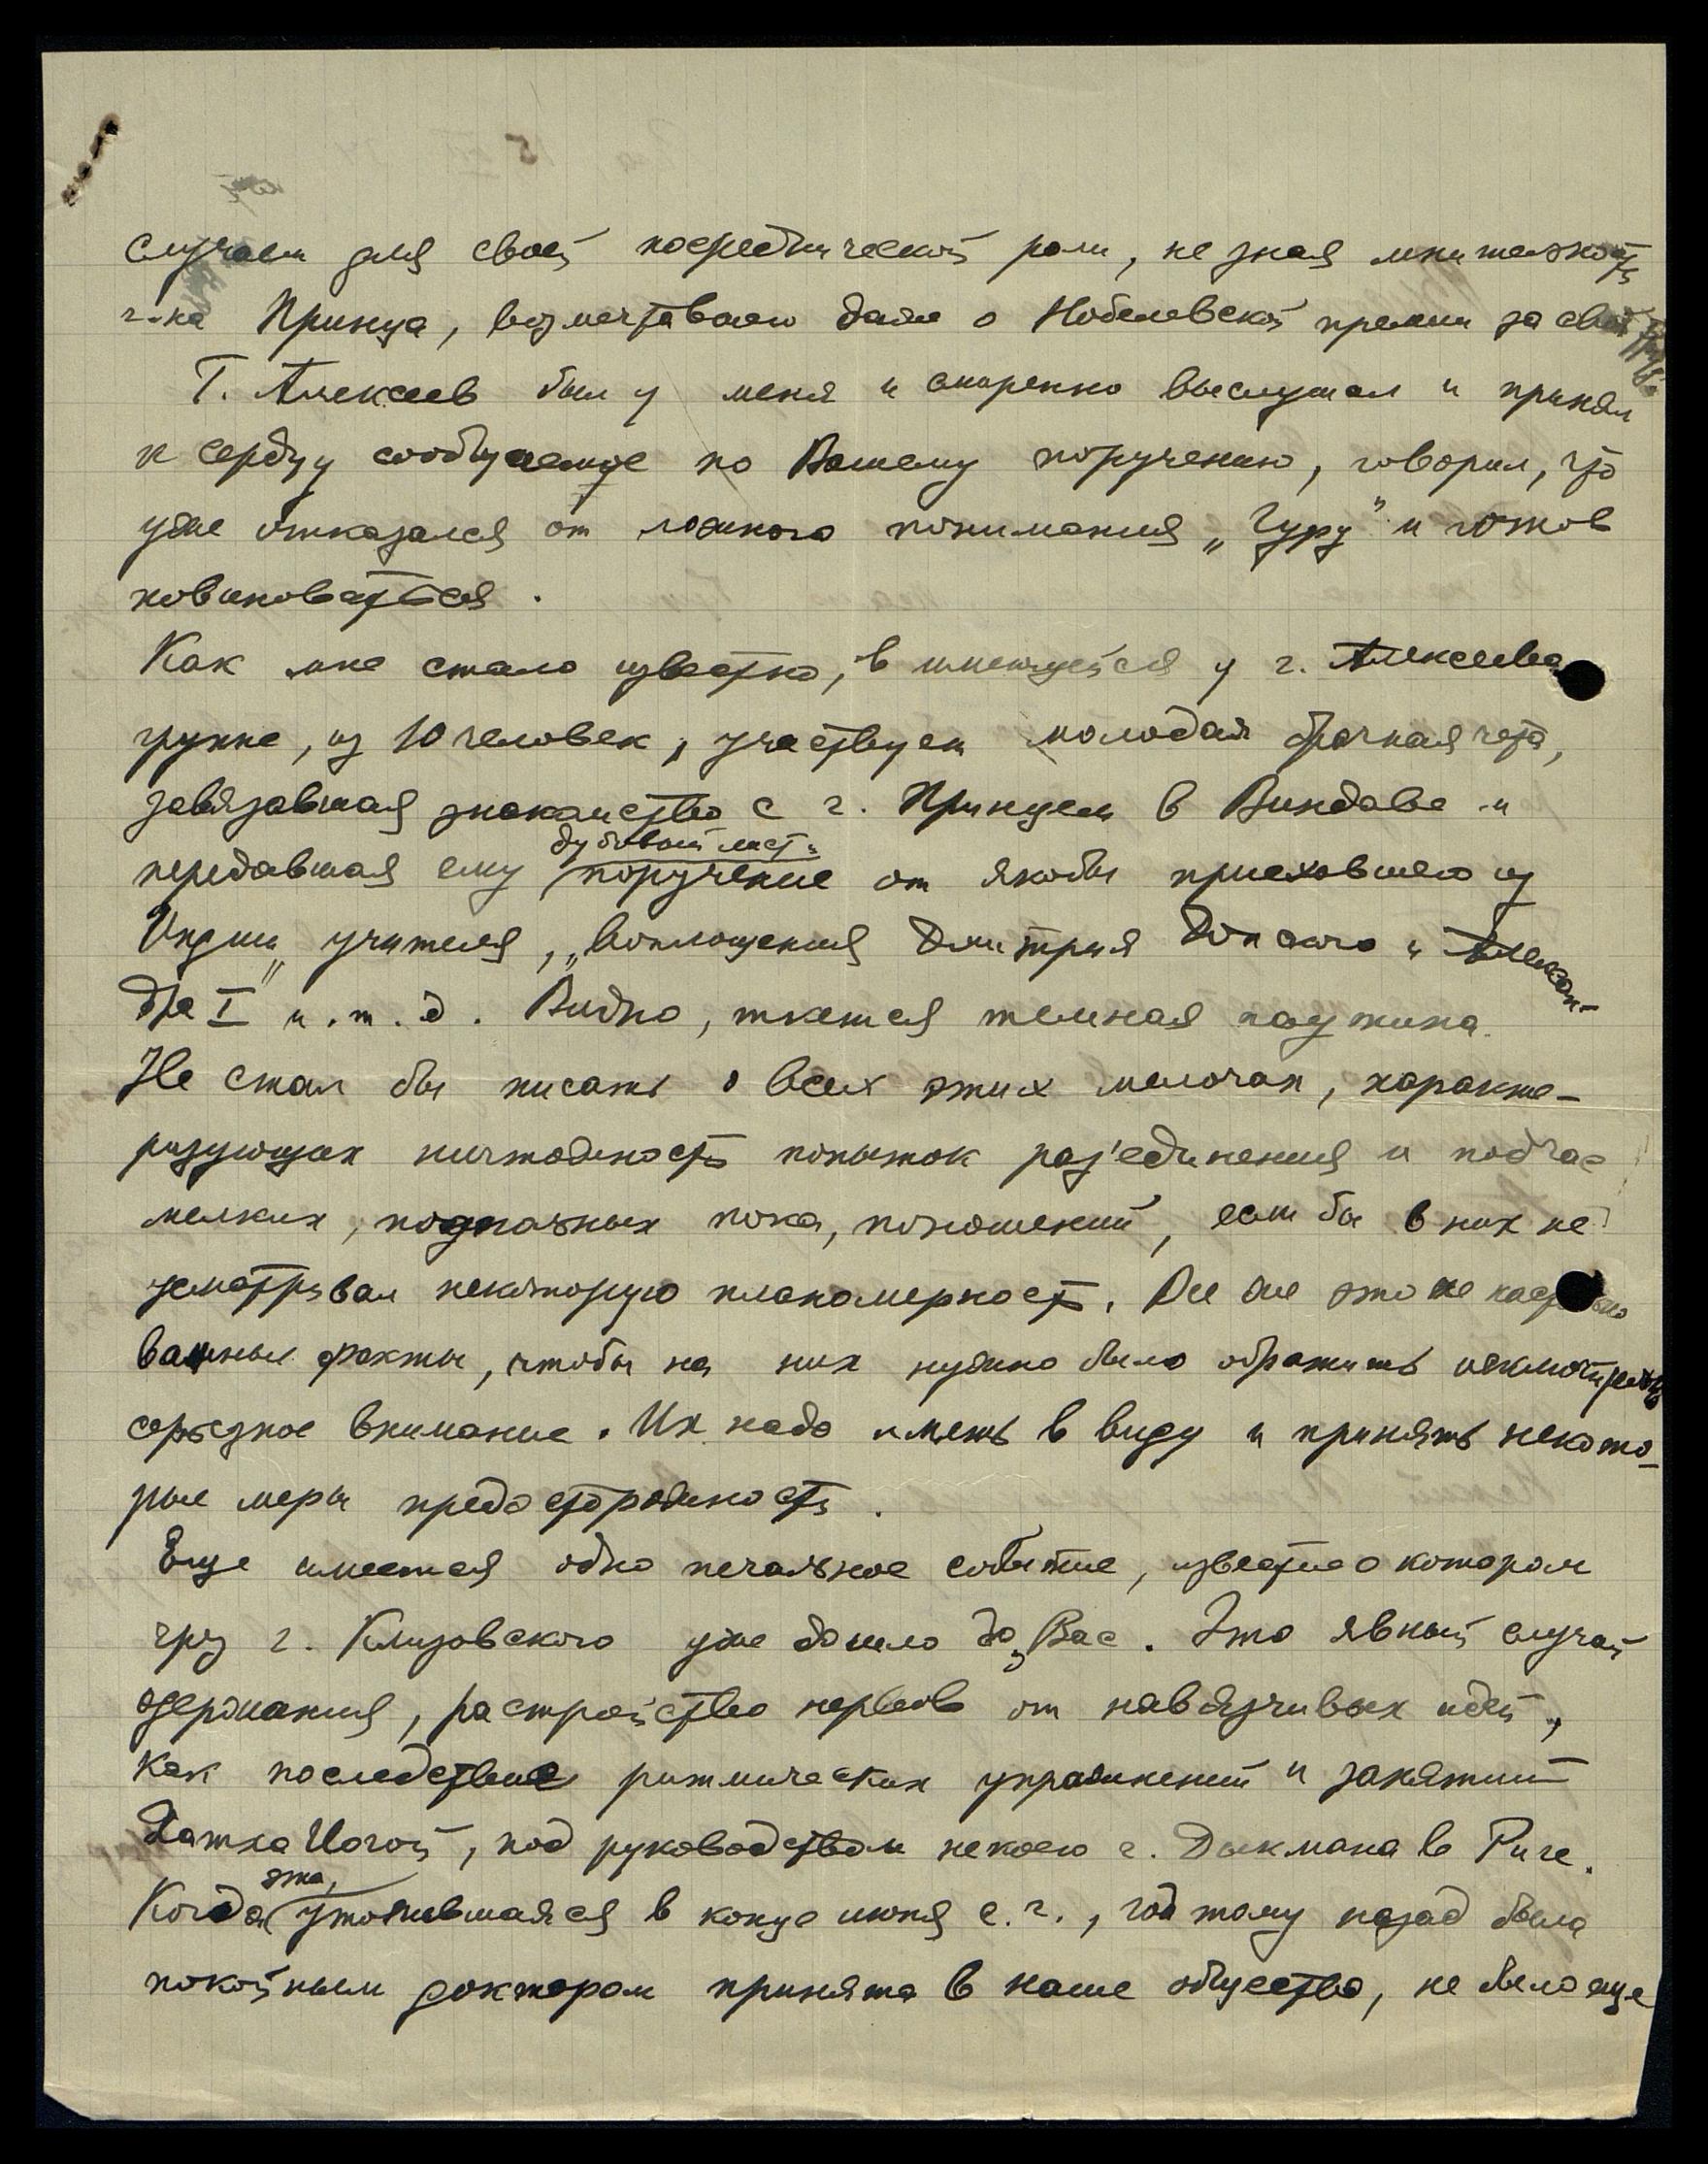 случаем для своей посреднической роли, не зная мнительность
г-на Принца, возмечтавшего даже о Нобелевской премии за свои
Г. Алексеев был у меня и смиренно выслушал и принял
к сердцу сообщаемое по Вашему поручению, говорил, что
уже отказался от ложного понимания „Гуру" и готов
повиноваться.
Как мне стало известно, в имеющейся у г. Алексеева
группе, из 10 человек, участвует молодая брачная чета,
завязавшая знакомство с г. Принцем в Виндаве и
дубовый лист и
передавшая ему поручение от якобы приехавшего из
Индии „учителя", „воплощения Дмитрия Донского и Алексан-
дра I и.т.д. Видно, ткется темная паутина.
Не стал бы писать о всех этих мелочах, характе-
ризующих ничтожность попыток раз'единения и подчас
мелких, подпольных пока, поношений, если бы в них не
усматривал некоторую планомерность. Все же это не настолько
важные факты, чтобы на них нужно было обратить исключительно
серьезное внимание. Их надо иметь в виду и принять некото-
рые меры предосторожности.
Еще имеется одно печальное событие, известие о котором
чрез г. Клизовского уже дошло до Вас. Это явный случай
одержания, растройство нервов от навязчивых идей,
как последствие ритмических упражнений и занятий
Хатха Йогой, под руководством некоего г. Дыкмана в Риге.
эта,
Когда утопившаяся в конце июня с.г., год тому назад была
покойным доктором принята в наше общество, не было еще